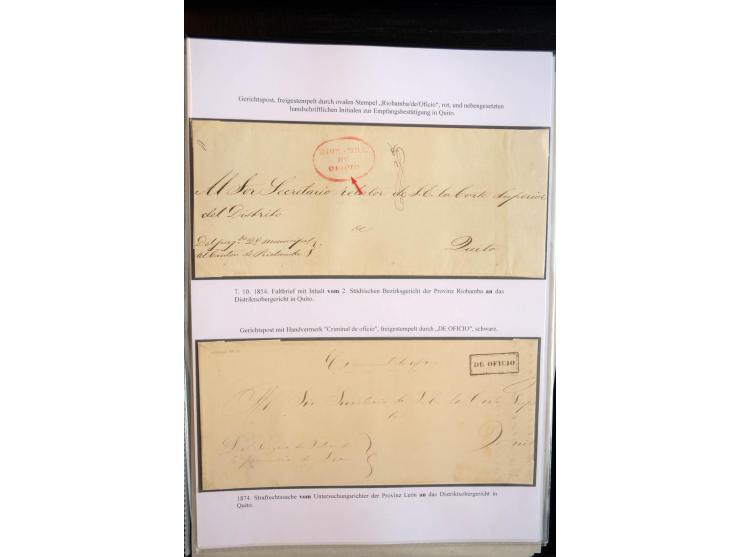 Gerichtspost, freigestempelt durch ovalen Stempel „Riobamba/de/Oficio", rot, und nebengesetzten
handschriftlichen Initialen zur Empfangsbestätigung in Quito.
DE
OFICIO
Al Sor Secretario relator de S.E. la Corte Superior
del Distrito
de
Quito
Municipal
al Canton de Riobamba
7. 10. 1854. Faltbrief mit Inhalt vom 2. Städtischen Bezirksgericht der Provinz Riobamba an das
Distriktsobergericht in Quito.
Gerichtspost mit Handvermerk "Criminal de oficio", freigestempelt durch „DE OFICIO", schwarz.
Criminal de oficio
DE OFICIO
Al Sor Secretario de S.E. la Corte
1874. Strafrechtssache vom Untersuchungsrichter der Provinz León an das Distriktsobergericht in
Quito.